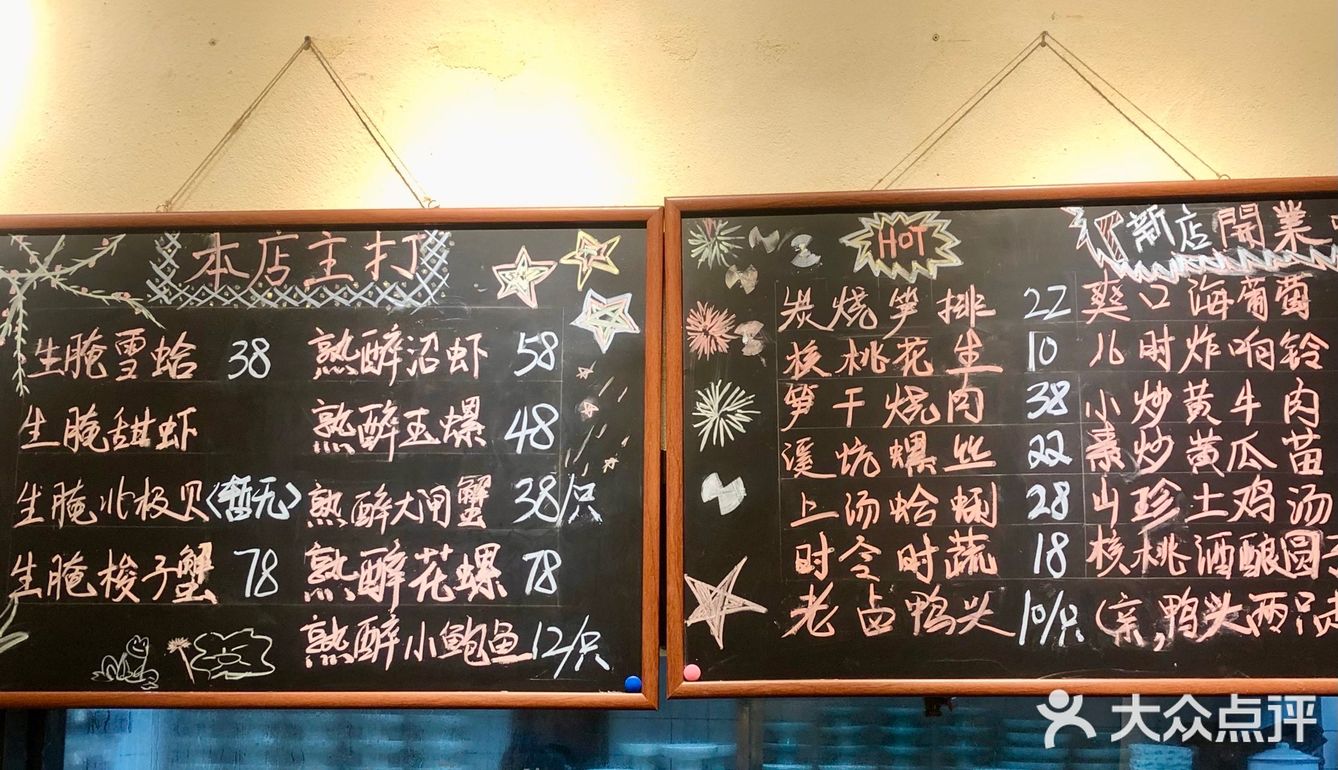 本店主打
生腌雪蛤 38 熟醉沼虾 58
生腌甜虾 熟醉玉螺 48
生腌北极贝<暂无> 熟醉大闸蟹 38/只
生腌梭子蟹 78 熟醉花螺 78
熟醉小鲍鱼 12/只
HOT 新店開業
炭烧笋排 22 爽口海葡萄
核桃花生 10 儿时炸响铃
笋干烧肉 38 小炒黄牛肉
溪坑螺丝 22 素炒黄瓜苗
上汤蛤蜊 28 山珍土鸡汤
时令时蔬 18 核桃酒酿圆
老卤鸭头 10/只 (亲,鸭头两只
大众点评